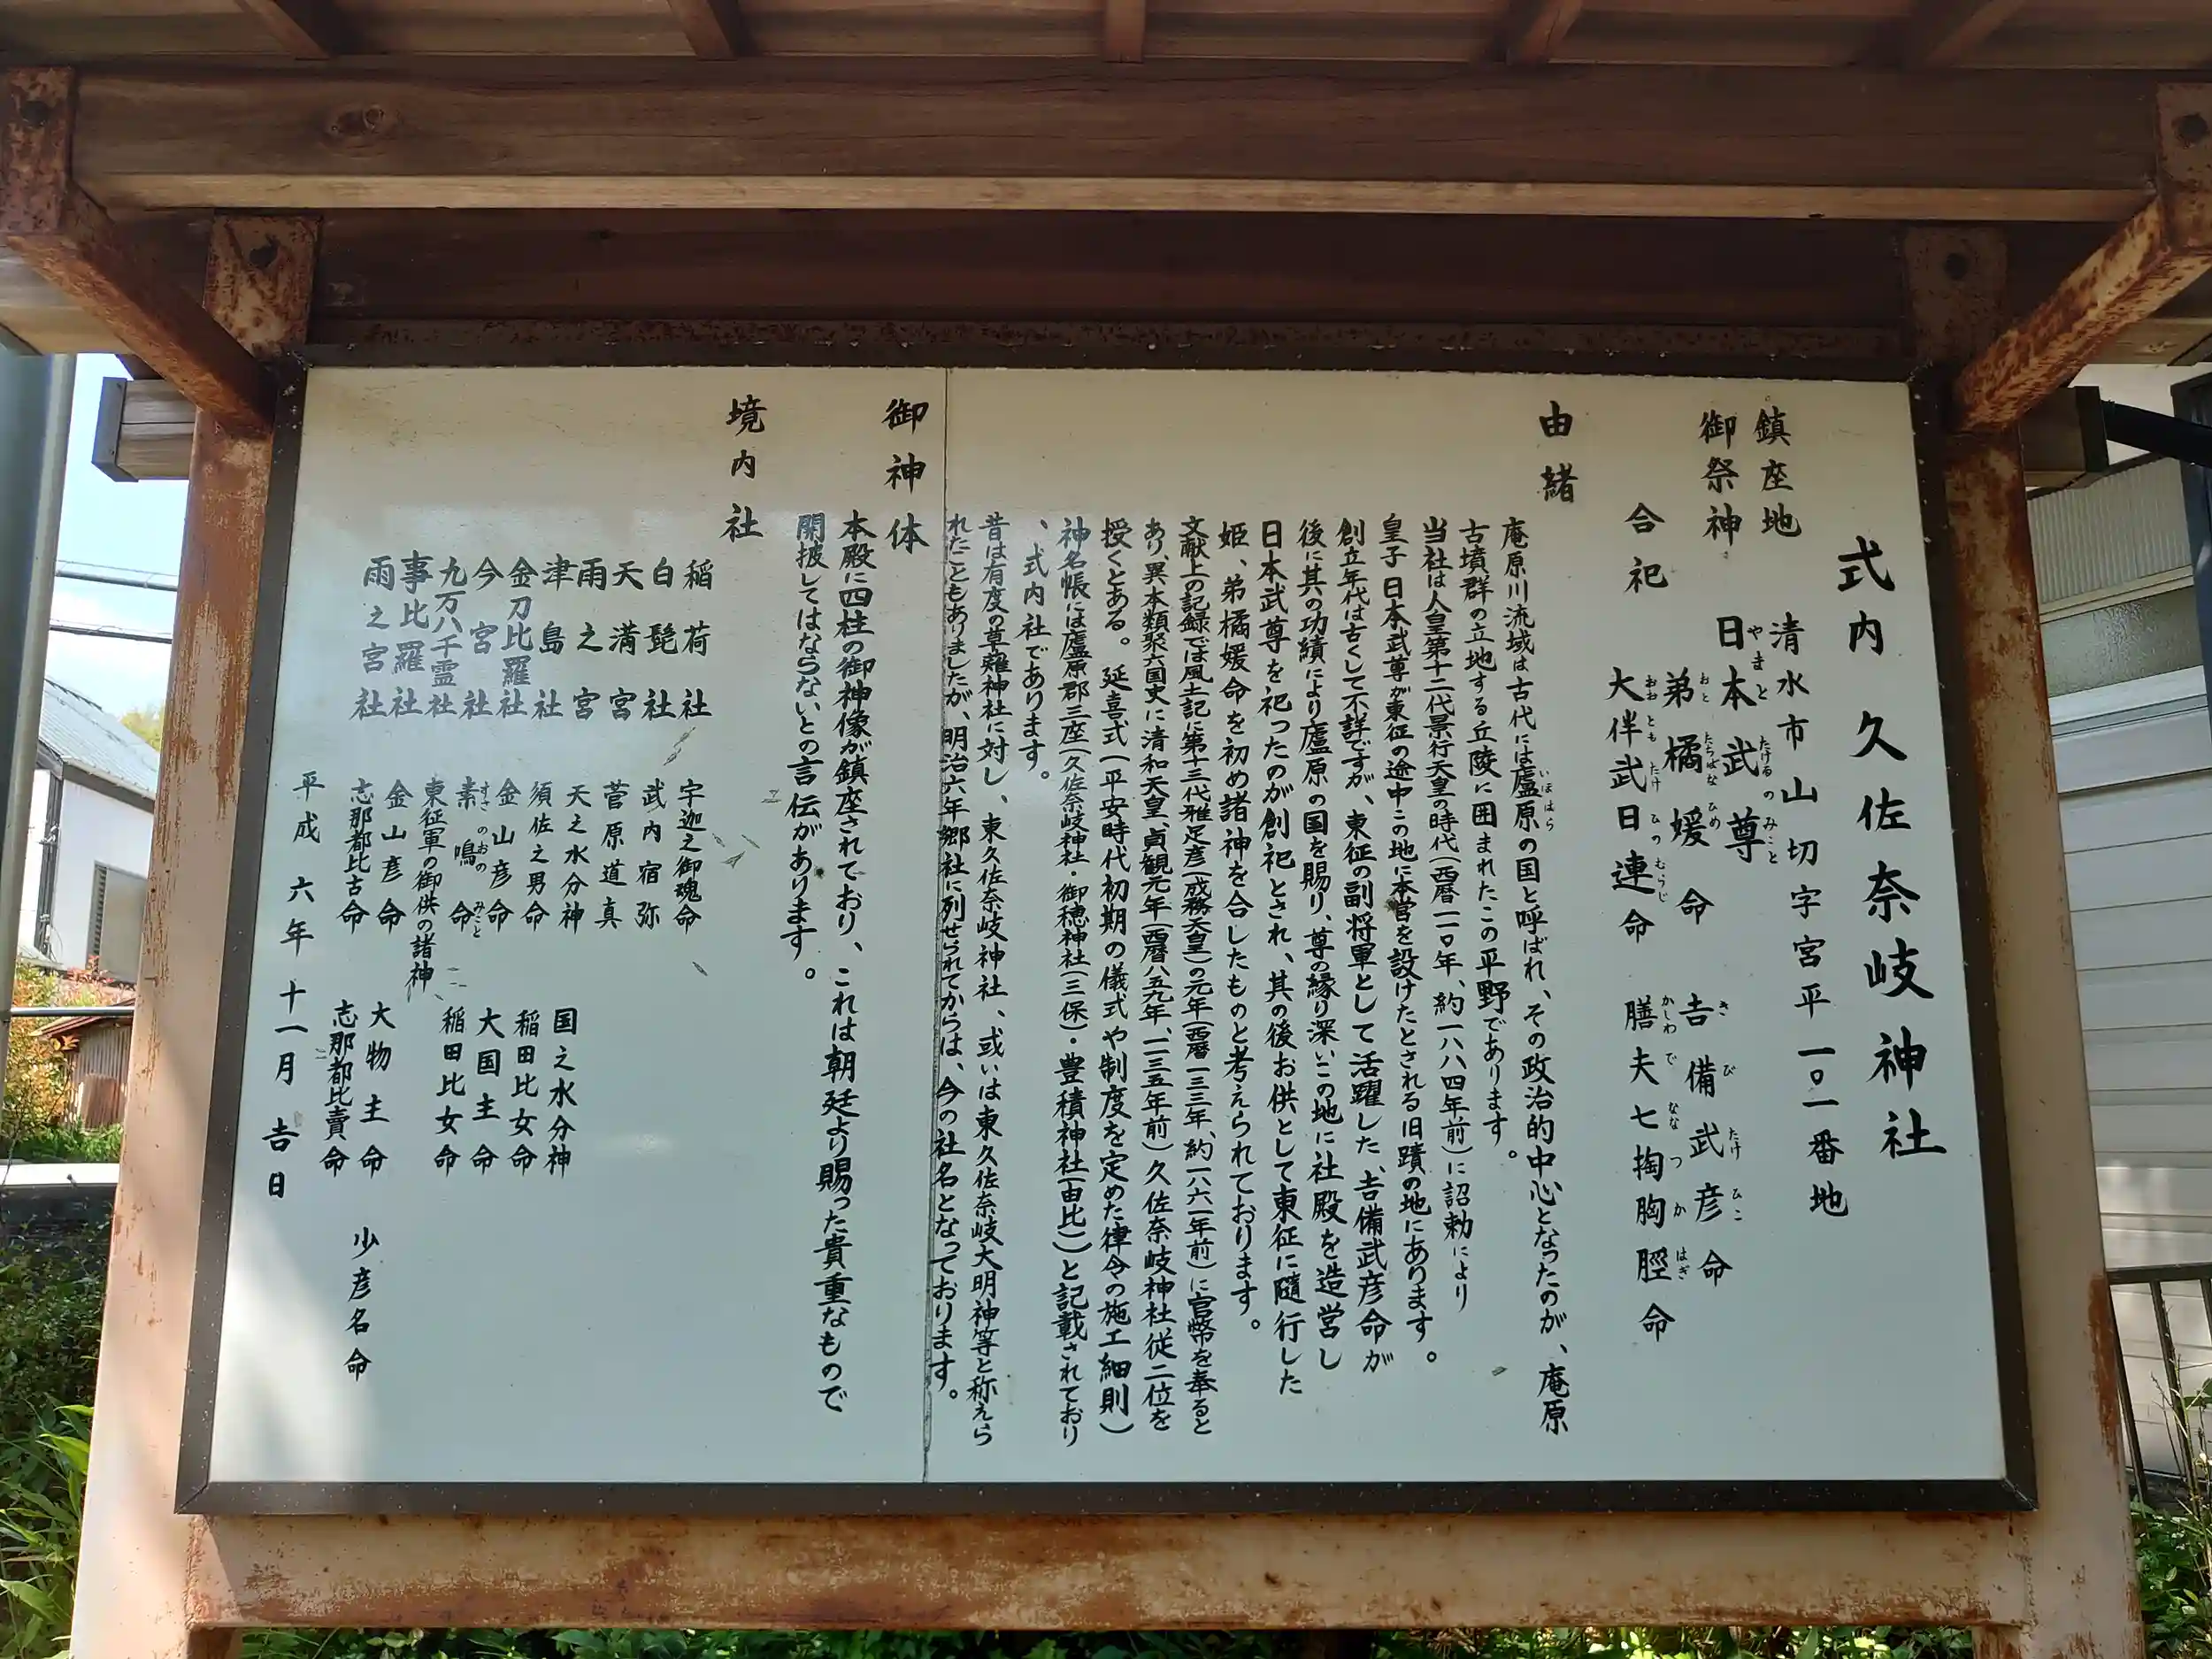 式内 久佐奈岐神社
鎮座地 清水市山切字宮平一〇一番地
御祭神 日本武尊 吉備武彦命
やまとたけるのみこと きびたけひこ
弟橘媛命
おとたちばなひめ
合祀 大伴武日連命 膳夫七掬胸脛命
おおともたけひのむらじ かしわでななつかはぎ
由緒
庵原川流域は古代には廬原の国と呼ばれ、その政治的中心となったのが、庵原
いほはら
古墳群の立地する丘陵に囲まれたこの平野であります。
当社は人皇第十二代景行天皇の時代(西暦一一〇年、約一八八四年前)に詔勅により
皇子日本武尊が東征の途中この地に本宮を設けたとされる旧蹟の地にあります。
創立年代は古くして不詳ですが、東征の副将軍として活躍した、吉備武彦命が
後に其の功績により廬原の国を賜り、尊の縁り深いこの地に社殿を造営し
日本武尊を祀ったのが創祀とされ、其の後お供として東征に隨行した
姫、弟橘媛命を初め諸神を合したものと考えられております。
文献上の記録では風土記に第十三代雅足彦(成務天皇)の元年(西暦一三三年、約一八六一年前)に官幣を奉ると
あり、異本類聚六国史に清和天皇、貞観元年(西暦八五九年、一一三五年前)久佐奈岐神社、従二位を
授くとある。延喜式(平安時代初期の儀式や制度を定めた律令の施工細則)
神名帳には廬原郡三座(久佐奈岐神社・御穂神社(三保)・豊積神社(由比))と記載されており
、式内社であります。
昔は有度の草薙神社に対し、東久佐奈岐神社、或いは東久佐奈岐大明神等と称えら
れたこともありましたが、明治六年郷社に列せられてからは、今の社名となっております。
御神体
本殿に四柱の御神像が鎮座されており、これは朝廷より賜った貴重なもので
開披してはならないとの言伝があります。
境内社
稲荷社 宇迦之御魂命
白髭社 武内宿弥
天満宮 菅原道真
雨之宮 天之水分神 国之水分神
津島社 須佐之男命 稲田比女命
金刀比羅社 金山彦命 大国主命
今宮社 素鳴命 稲田比女命
すさのおのみこと
九万八千霊社 東征軍の御供の諸神
事比羅社 金山彦命 大物主命 少彦名命
雨之宮社 志那都比古命 志那都比賣命
平成六年十一月吉日